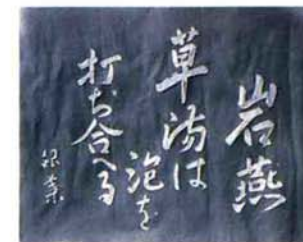 岩燕
草湯は
泡を
打ち合へる